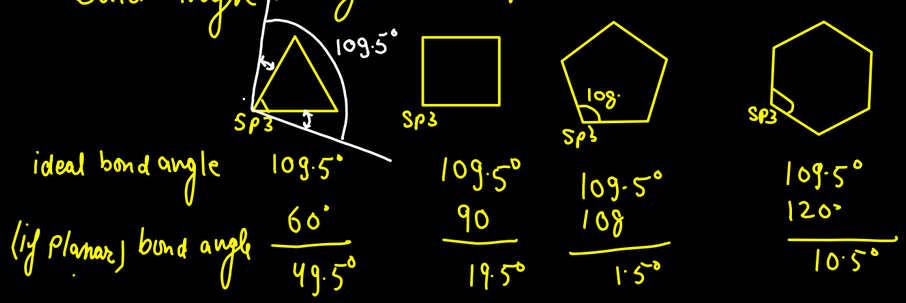 109.5°
108.
sp3 sp3 sp3 sp3
ideal bond angle 109.5° 109.5° 109.5° 109.5°
(if planar) bond angle 60° 90 108 120°
49.5° 19.5° 1.5° 10.5°